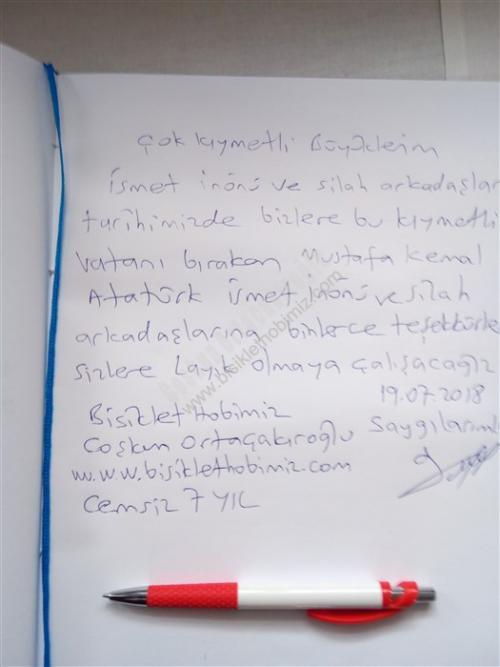 Çok kıymetli Büyüklerim
İsmet İnönü ve silah arkadaşlar
tarihimizde bizlere bu kıymetli
vatanı bırakan Mustafa Kemal
Atatürk İsmet İnönü ve silah
arkadaşlarına binlerce teşekkürle
sizlere Layık olmaya çalışacağız
19.07.2018
BisikletHobimiz
Saygılarıml
Coşkun Ortaçakıroğlu
www.bisiklethobimiz.com
Cemsiz 7 YIL
www.bisiklethobimiz.com